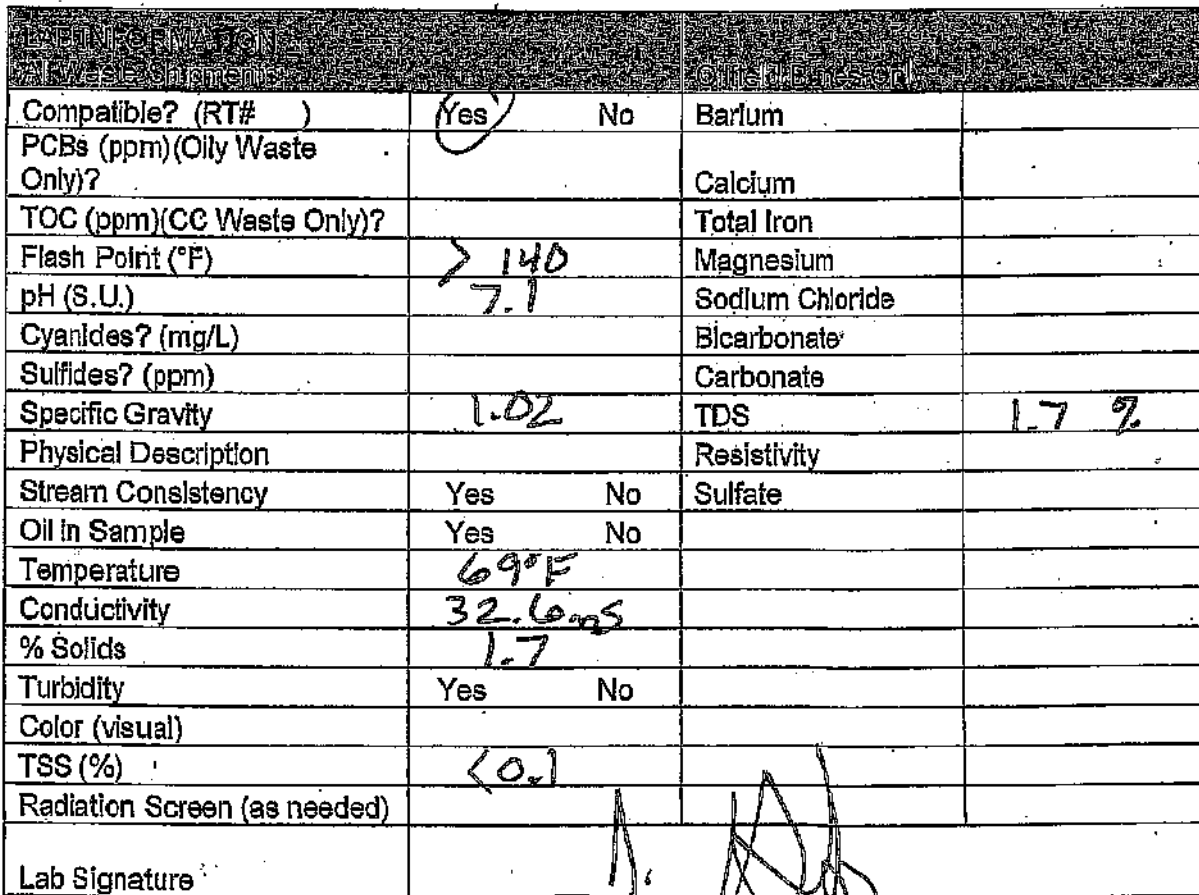 LAB INFORMATION
All Waste Shipments Oilfield Brines Only
Compatible? (RT# ) Yes No Barium
PCBs (ppm)(Oily Waste
Only)? Calcium
TOC (ppm)(CC Waste Only)? Total Iron
Flash Point (°F) > 140 Magnesium
pH (S.U.) 7.1 Sodium Chloride
Cyanides? (mg/L) Bicarbonate
Sulfides? (ppm) Carbonate
Specific Gravity 1.02 TDS 1.7 %
Physical Description Resistivity
Stream Consistency Yes No Sulfate
Oil in Sample Yes No
Temperature 69°F
Conductivity 32.6 mS
% Solids 1.7
Turbidity Yes No
Color (visual)
TSS (%) <0.1
Radiation Screen (as needed)
Lab Signature